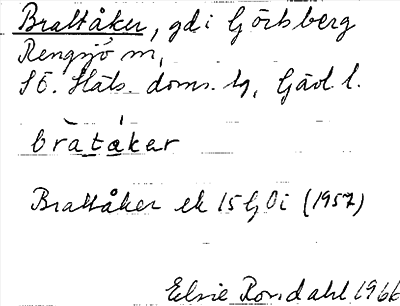 Brattåker, gd i Görtsberg
Rengsjö sn,
SÖ. Häls. doms. tg, Gävl l.
bràtákar
Brattåker ek 15 GDi (1957)
Elsie Rosdahl 1966